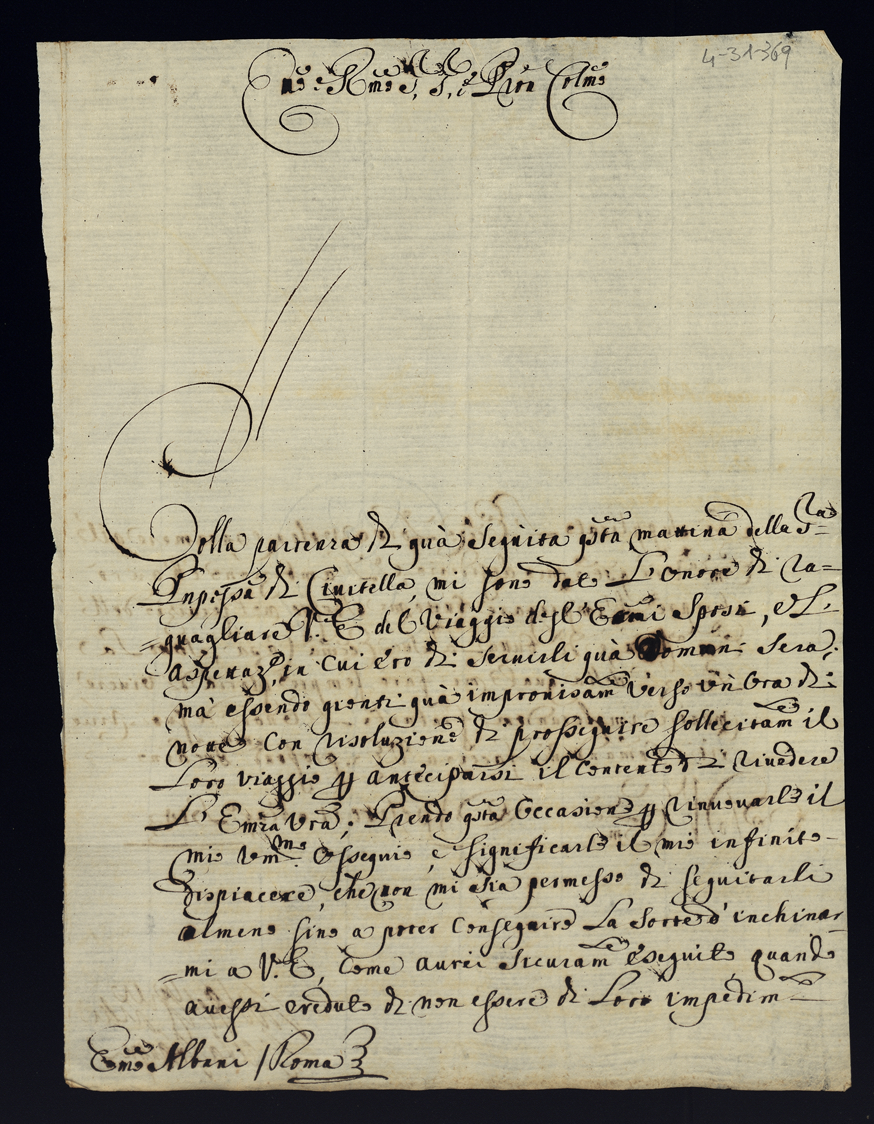 4-31-369
Em̃o e Rm̃o S, S, e Pron Colmo
Colla partenza di quà seguita qsta mattina della S.ra
Pnpessa di Civitella, mi sono dato L'onore di ra=
=guagliare V. E. del Viaggio degl'Em̃i Sposi, e L'
in cui ero di servirli quà Domani Sera;
mà essendo gionti quà improvisam.te verso un'Ora di
notte con risoluzione di prosseguire sollecitam.te il
Loro viaggio p antecipassi il contento di rivedere
L'Em̃za Vra; Prendo qsta Occasione p rinuovarle il
mio um.mo Ossequio, e significarle il mio infinito
dispiacere, che non mi sia permesso di seguitarli
almeno sino a poter conseguire La sorte d'inchinar=
=mi a V. E., come aurei sicuram.te eseguito quando
avessi creduto di non essere di Loro impedim.to
Em̃o Albani / Roma